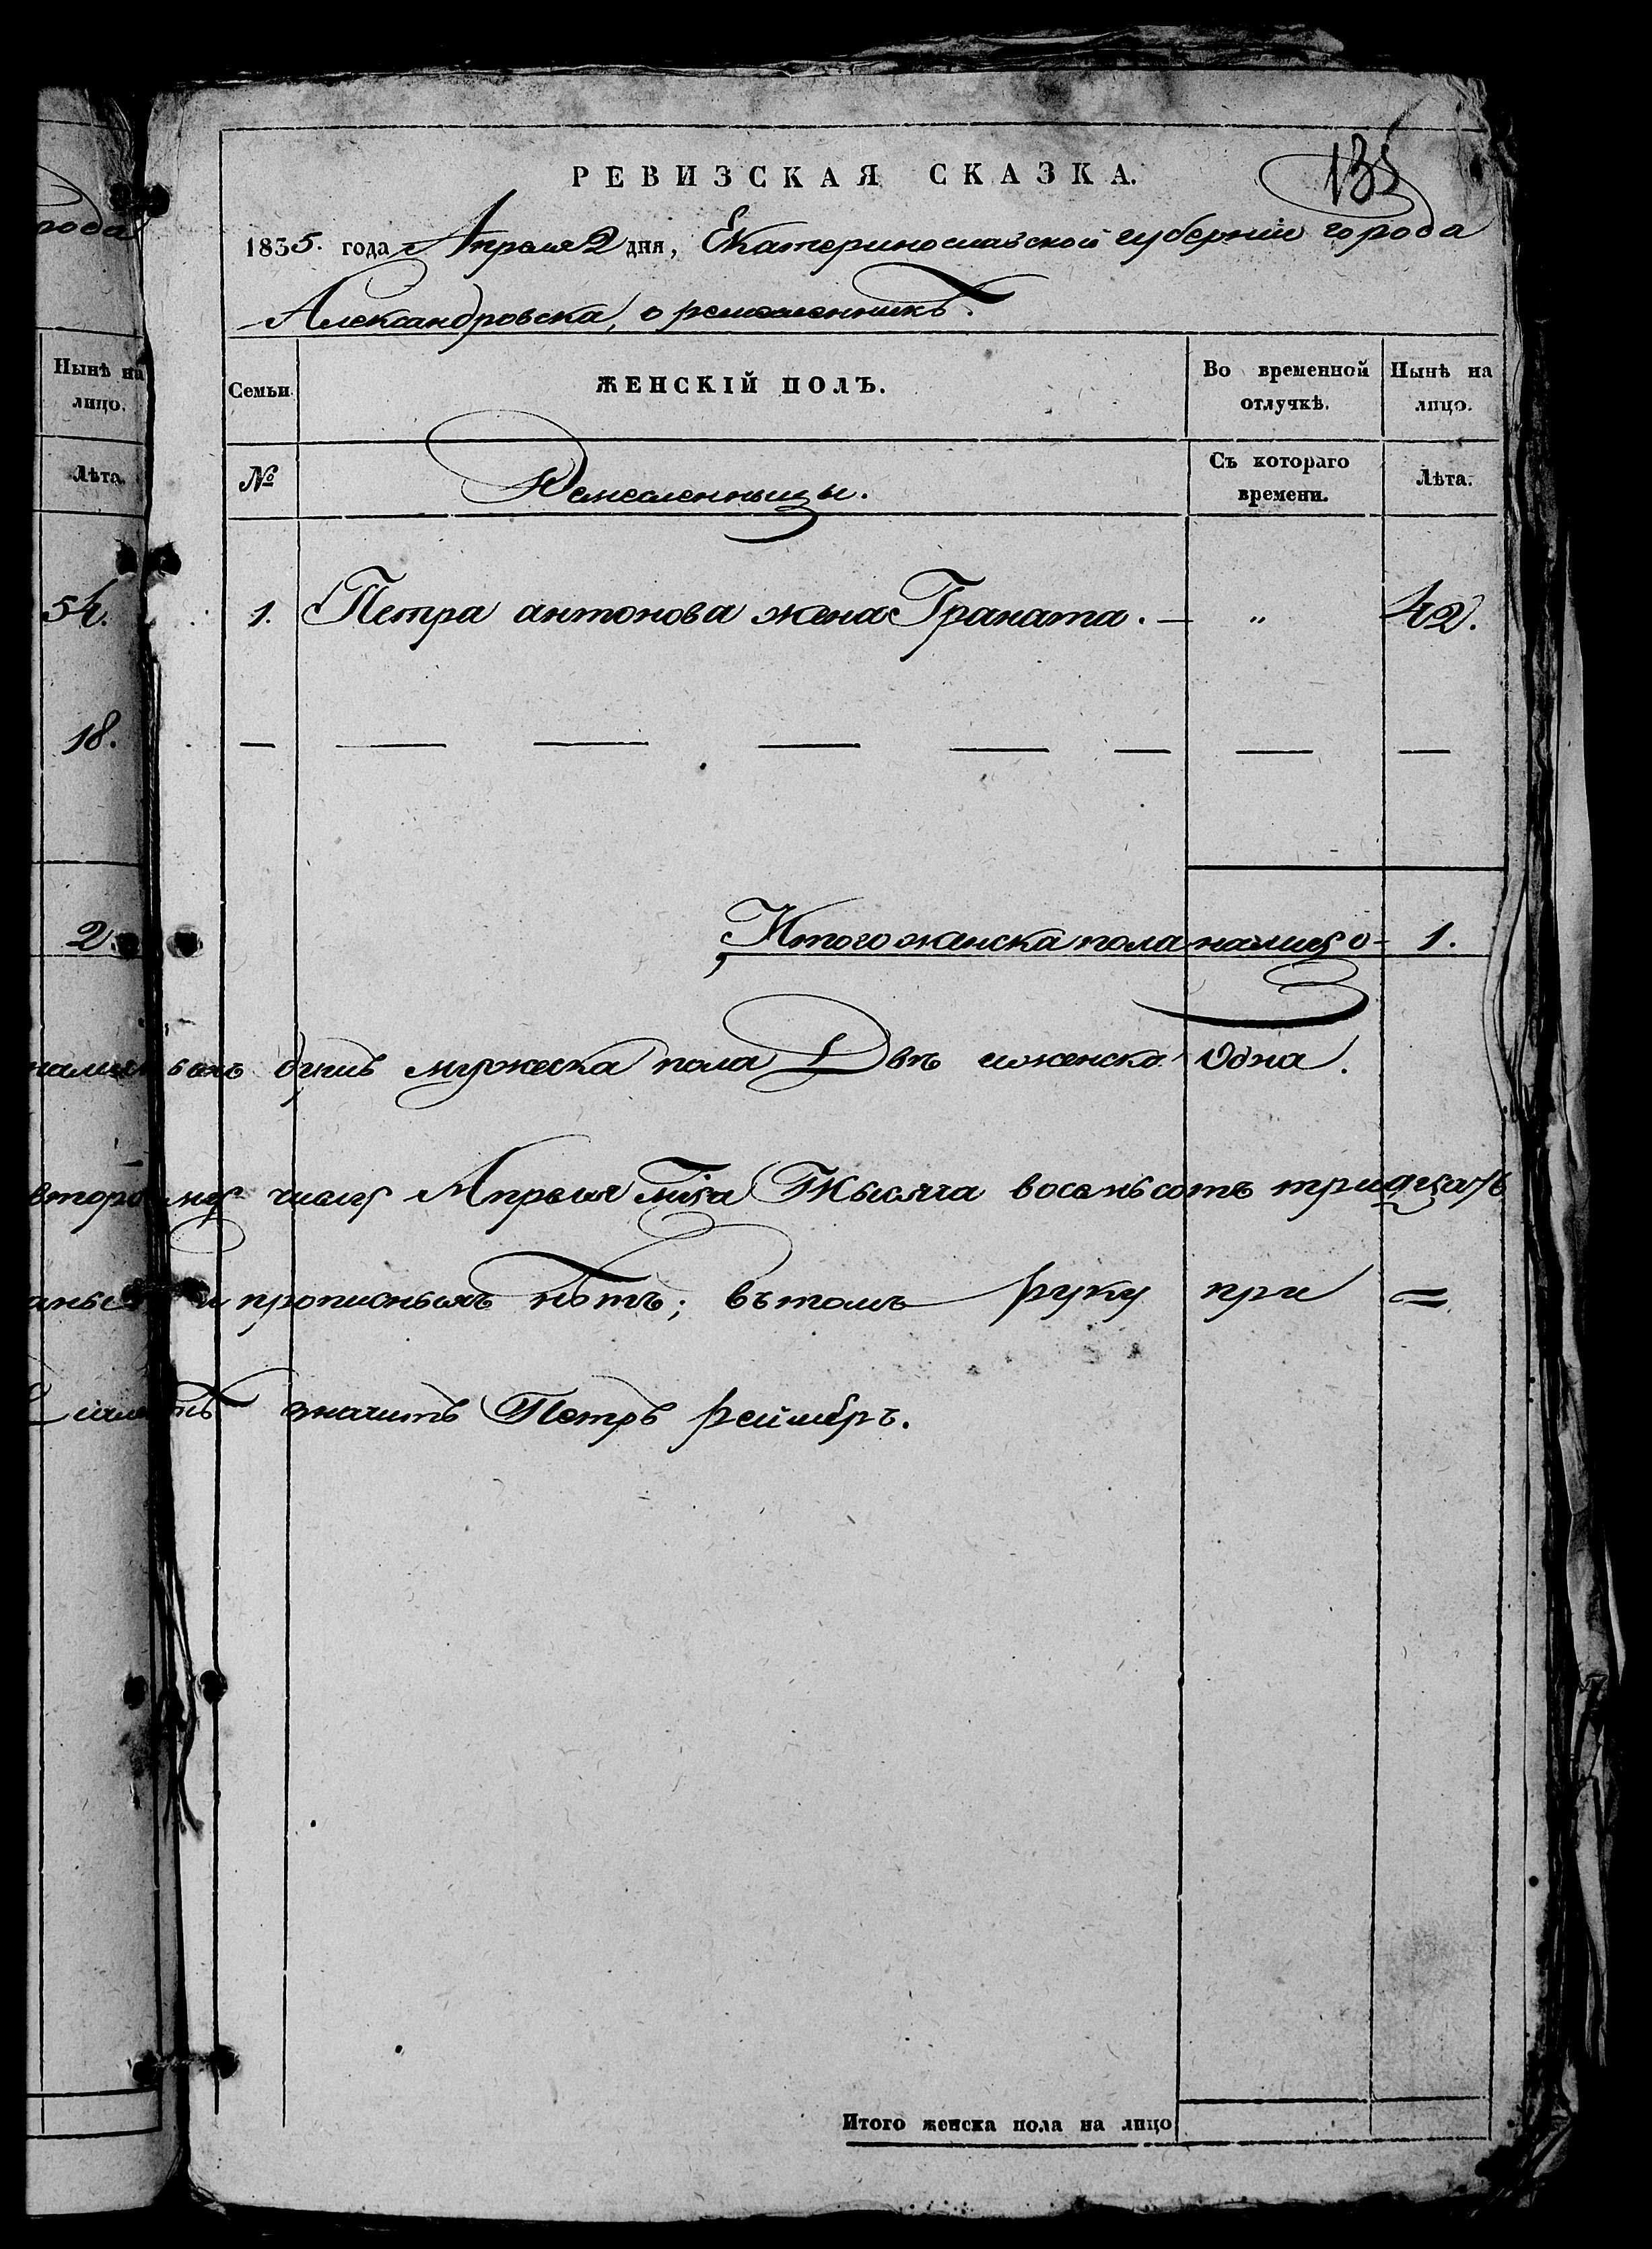 135
РЕВИЗСКАЯ СКАЗКА.
1835. года Апреля 2 дня, Екатеринославской губернии города
Александровска, о ремесленникѣ.
Нынѣ на лицо.
Семьи
ЖЕНСКІЙ ПОЛЪ.
Во временной отлучкѣ.
Нынѣ на лицо.
Лѣта.
№
Ремесленницы.
Съ котораго времени.
Лѣта.
54.
1. Петра антонова жена Граната. — „ 42.
18.
2.
Итого женска пола налицо - 1.
душъ мужеска пола Двѣ иженска Одна.
числу Апреля Тысяча восемьсотъ тридцать
и прописныхъ нѣтъ; втомъ руку при =
значитъ Петръ реймеръ.
Итого женска пола на лицо